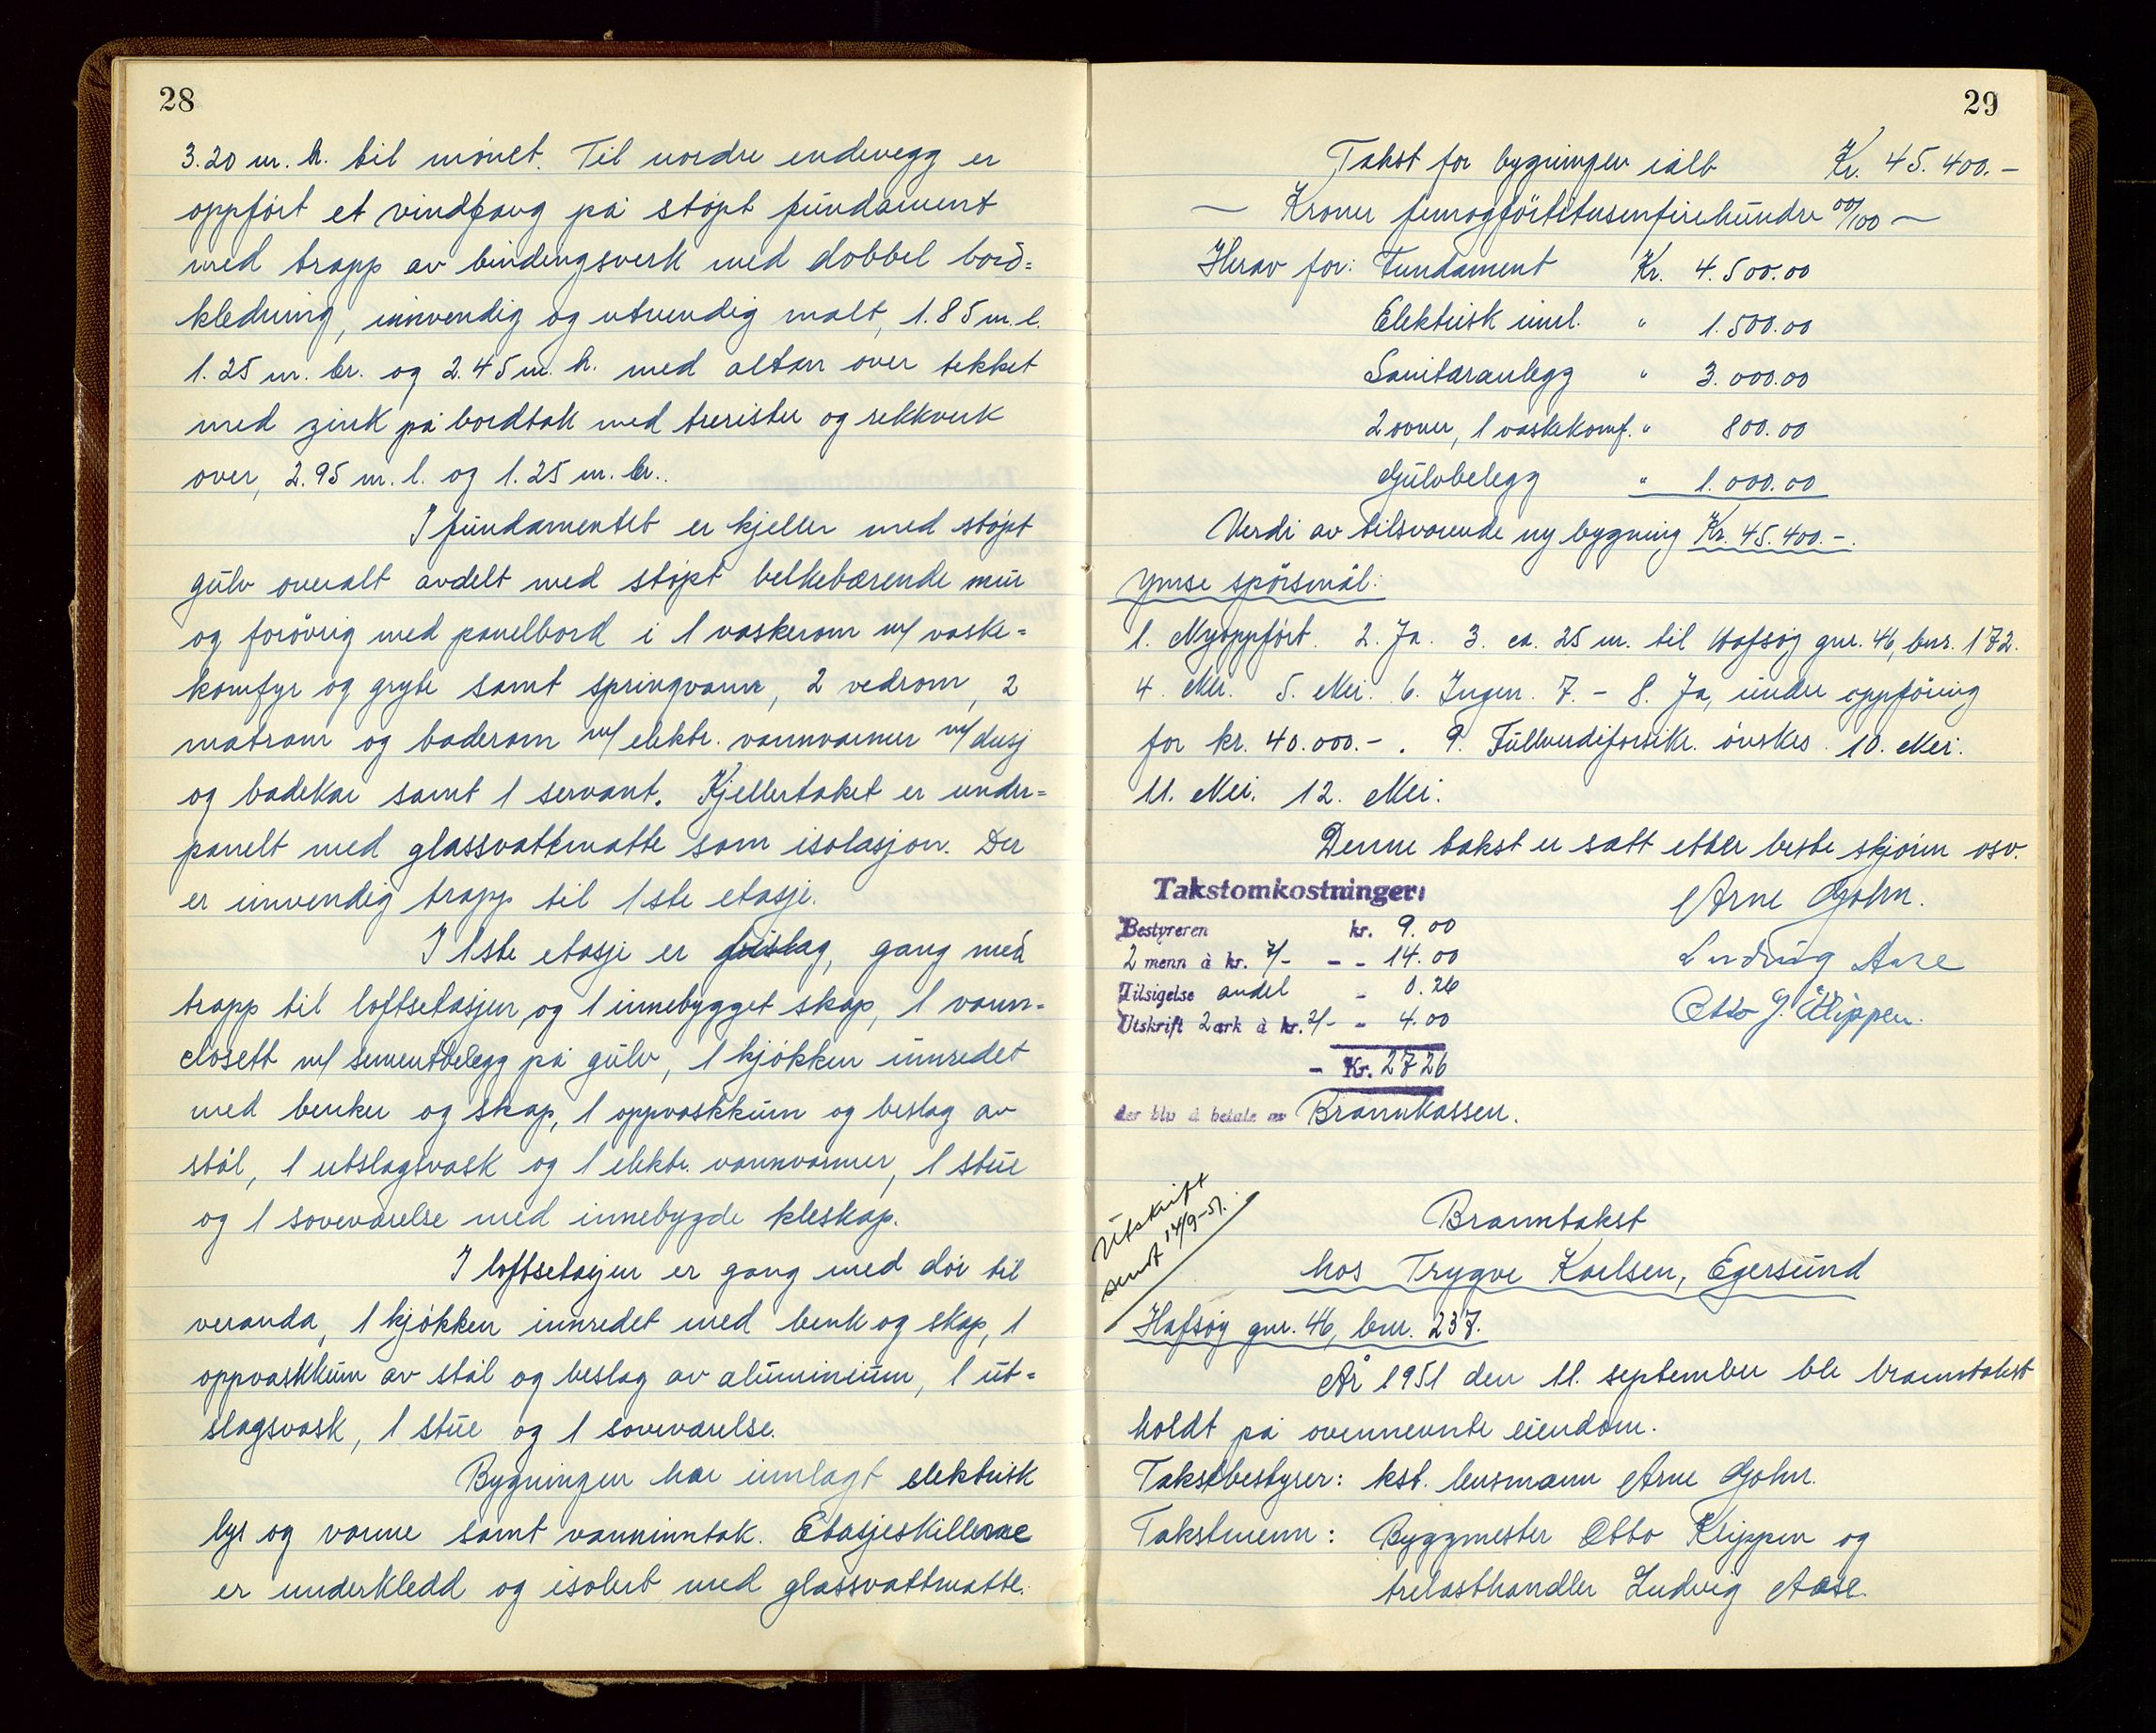 28
3.20 m. h. til mønet. Til nordre endevegg er
oppført et vindfang på støpt fundament
med trapp av bindingsverk med dobbel bord=
kledning, innvendig og utvendig malt, 1.85 m. l.
1.25 m. br. og 2.45 m. h. med altan over tekket
med zink på bordtak med trerister og rekkverk
over, 2.95 m. l. og 1.25 m. br..
I fundamentet er kjeller med støpt
gulv overalt avdelt med støpt belkebærende mur
og forøvrig med panelbord i 1 vaskerom m/ vaske=
komfyr og gryte samt springvann, 2 vedrom, 2
matrom og baderom m/ elektr. vannvarmer m/ dusj
og badekar samt 1 servant. Kjellertaket er under=
panelt med glassvattmatte som isolasjon. Der
er innvendig trapp til 1ste etasje.
I 1ste etasje er gang med
trapp til loftsetasjen, og 1 innebygget skap, 1 vann=
closett m/ sementbelegg på gulv, 1 kjøkken innredet
med benker og skap, 1 oppvaskkum og beslag av
stål, 1 utslagsvask og 1 elektr. vannvarmer, 1 stue
og 1 soveværelse med innebygde kleskap.
I loftsetasjen er gang med dør til
veranda, 1 kjøkken innredet med benk og skap, 1
oppvaskkum av stål og beslag av aluminium, 1 ut=
slagsvask, 1 stue og 1 soveværelse.
Bygningen har innlagt elektrisk
lys og varme samt vanninntak. Etasjeskillerne
er underkledd og isolert med glassvattmatte.
29
Takst for bygningen ialt Kr. 45.400.-
— Kroner femogførtitusenfirehundre 00/100 —
Herav for: Fundament Kr. 4.500.00
Elektrisk innl. " 1.500.00
Sanitæranlegg " 3.000.00
2 ovner, 1 vaskekomf. " 800.00
Gulvbelegg " 1.000.00
Verdi av tilsvarende ny bygning Kr. 45.400.-.
Ymse spørsmål:
1. Nyoppført. 2. Ja. 3. ca. 25 m. til Hafsøy gnr. 46, bnr. 172.
4. Nei. 5. Nei. 6. Ingen. 7. - 8. Ja, under oppføring
for kr. 40.000.-. 9. Fullverdiforsikr. ønskes. 10. Nei.
11. Nei. 12. Nei.
Denne takst er satt etter beste skjønn osv.
Takstomkostninger:
Arne Gohn.
Bestyreren kr. 9.00
2 menn à kr. 7/- - - 14.00
Ludvig Aase
Tilsigelse andel - 0.26
Otto J. Klippen.
Utskrift 2 ark à kr. 2/- - 4.00
- Kr. 27 26
der blir å betale av Brannkassen.
Utskrift
sendt 14/9-51.
Branntakst
hos Trygve Karlsen, Egersund
Hafsøy gnr. 46, bnr. 237.
År 1951 den 11. september ble branntakst
holdt på ovennevnte eiendom.
Takstbestyrer: kst. lensmann Arne Gohn.
Takstmenn: Byggmester Otto Klippen og
trelasthandler Ludvig Aase.